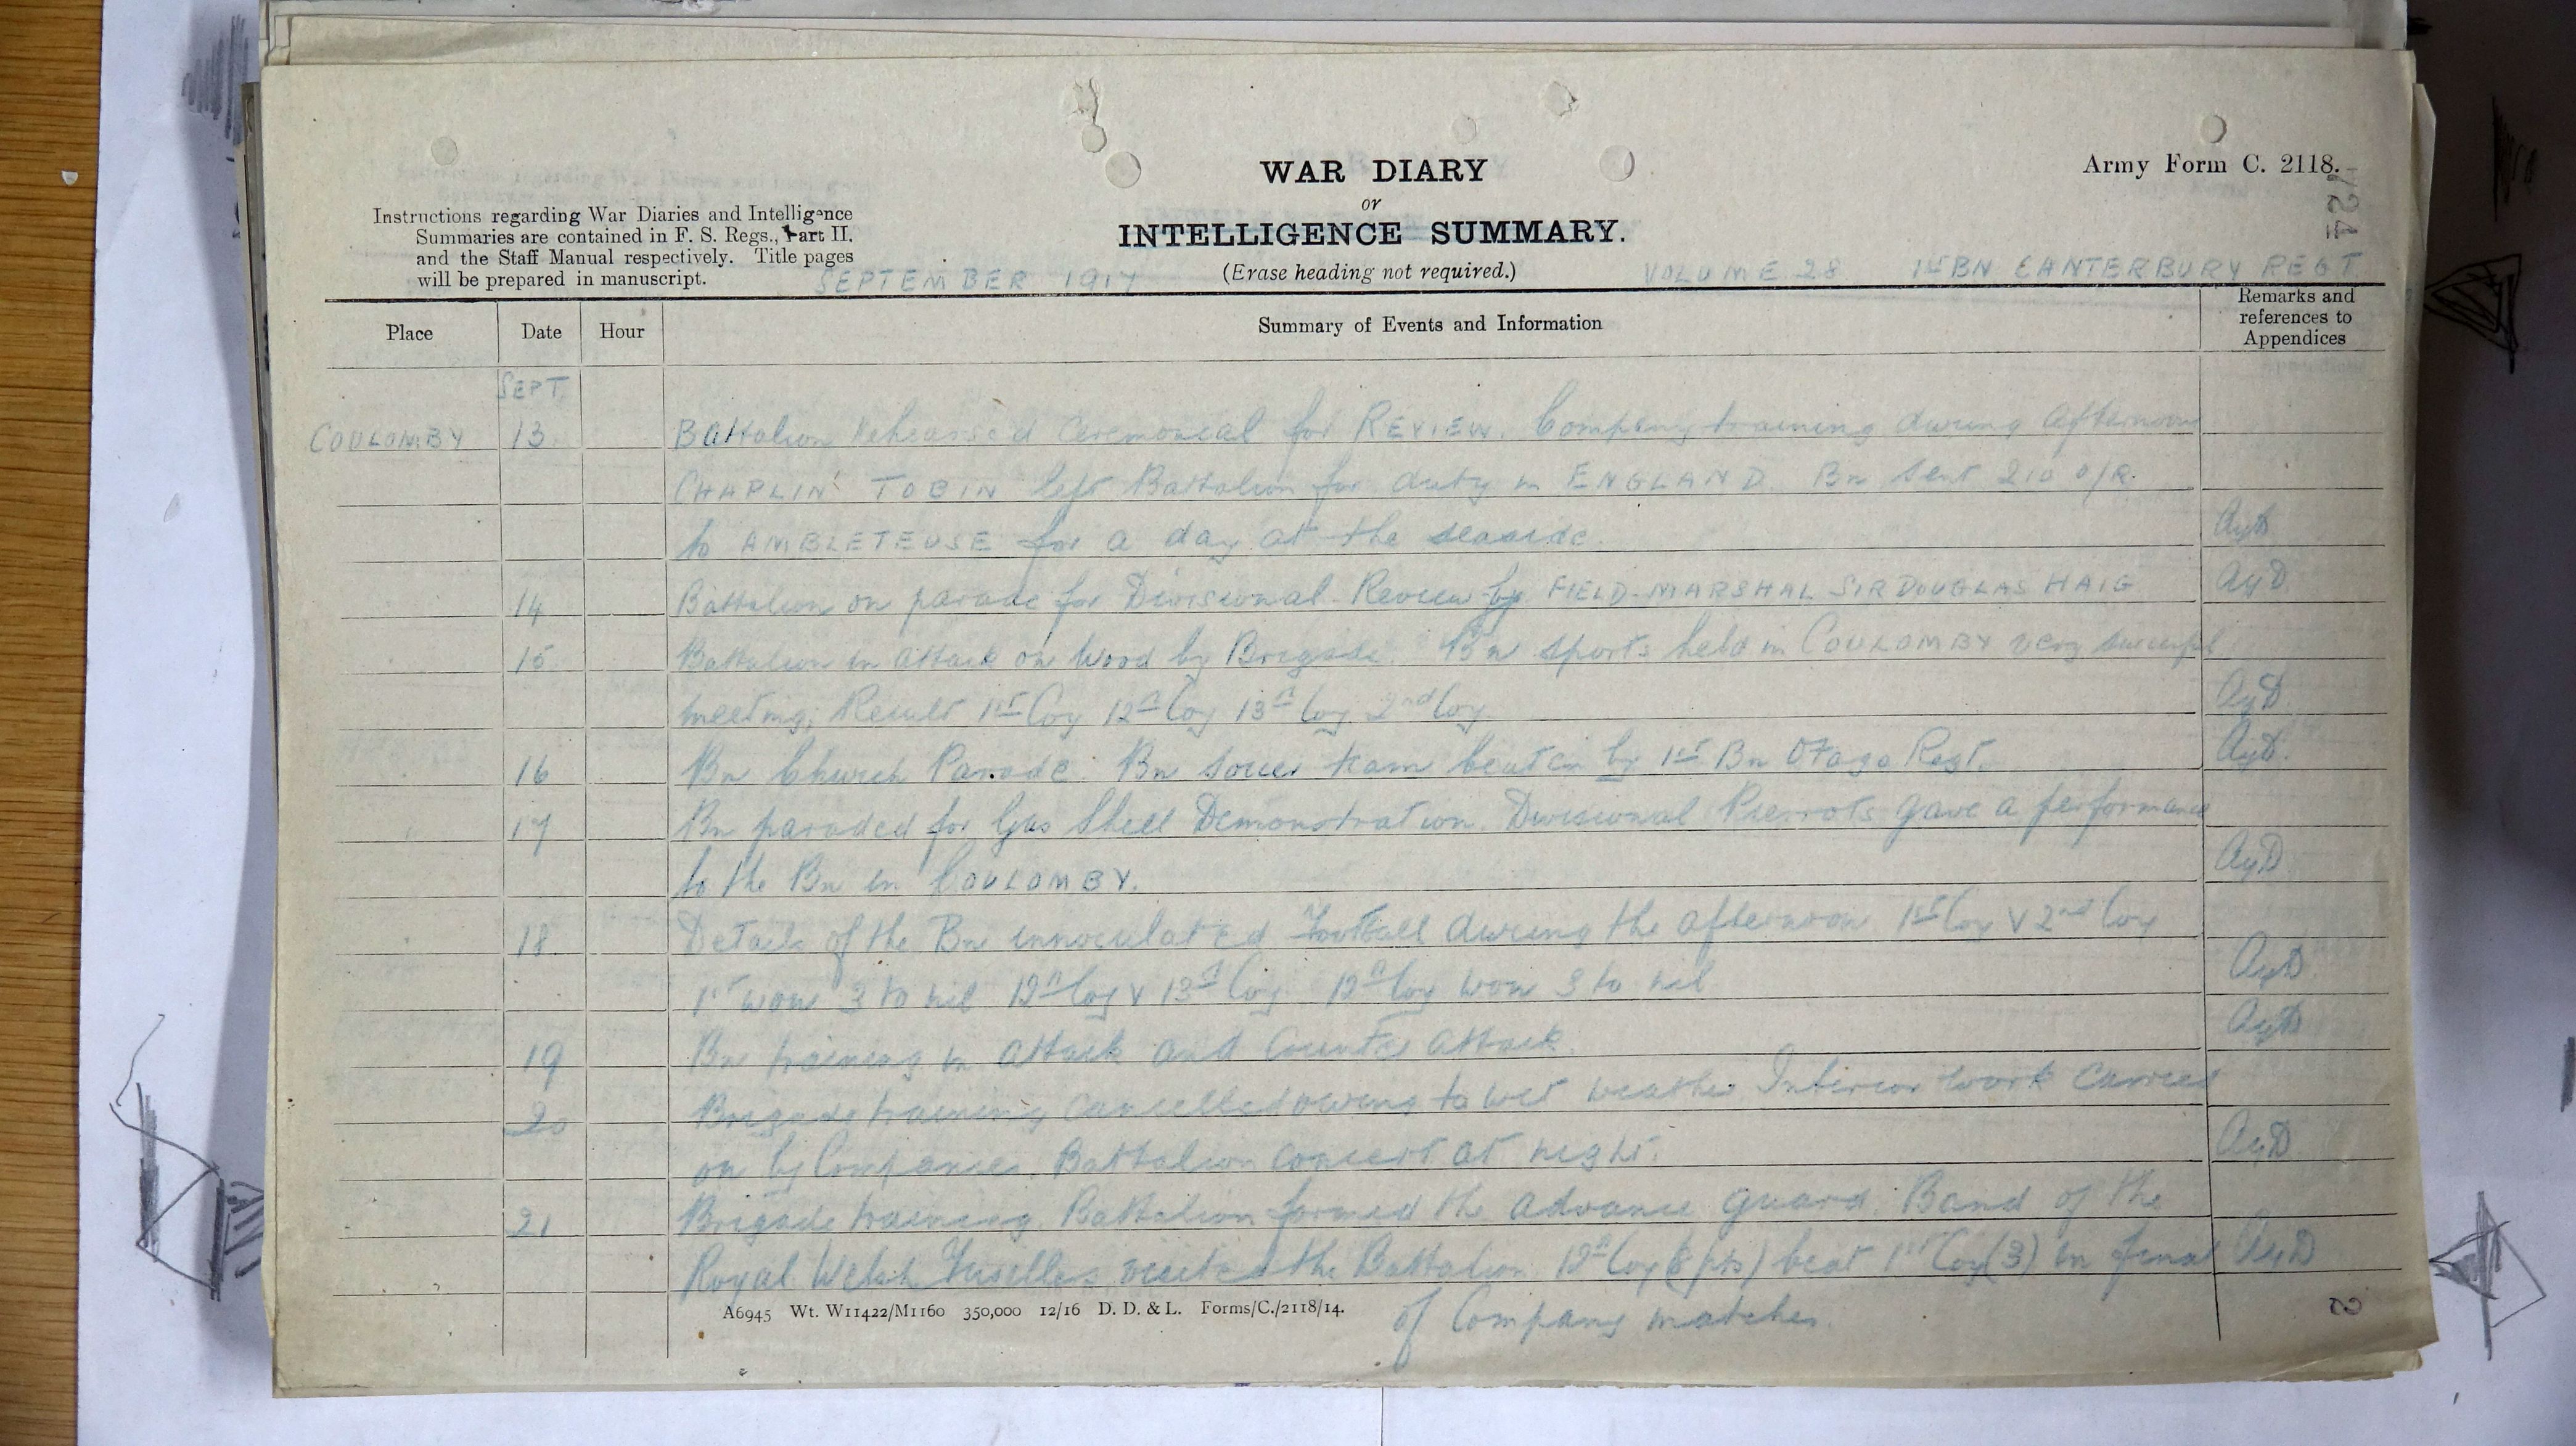 WAR DIARY
or
INTELLIGENCE SUMMARY.
(Erase heading not required.)
Army Form C. 2118.
Instructions regarding War Diaries and Intelligence
Summaries are contained in F. S. Regs., Part II.
and the Staff Manual respectively. Title pages
will be prepared in manuscript.
SEPTEMBER 1917
VOLUME 28 1st BN CANTERBURY REGT
Place Date Hour Summary of Events and Information Remarks and references to Appendices
SEPT
COULOMBY 13 Battalion Rehearsed Ceremonial for REVIEW. Company training during afternoon
CHAPLIN TOBIN left Battalion for duty in ENGLAND Bn sent 210 O/R.
to AMBLETEUSE for a day at the seaside. AyD
14 Battalion on parade for Divisional Review by FIELD-MARSHAL SIR DOUGLAS HAIG AyD
15 Battalion in attack on Wood by Brigade. Bn sports held in COULOMBY very
meeting; Result 1st Coy 12th Coy 13th Coy 2nd Coy AyD
16 Bn Church Parade. Bn team beaten by 1st Bn Otago Regt. AyD.
17 Bn paraded for Gas Shell Demonstration. Divisional Pierrots gave a performance
to the Bn in COULOMBY. AyD
18 Details of the Bn innoculated Football during the afternoon 1st Coy v 2nd Coy
1st won 3 to nil 12th Coy v 13th Coy 12th Coy won 3 to nil AyD
19 Bn training in attack and Counter attack. AyD
20 Brigade training cancelled owing to wet weather Interior work carried
on by Companies. Battalion concert at night. AyD
21 Brigade training. Battalion formed the advance guard. Band of the
Royal Welsh visited the Battalion. 12th Coy ( pts) beat 1st Coy (3) in final AyD
of Company matches.
A6945 Wt. W11422/M1160 350,000 12/16 D. D. & L. Forms/C./2118/14.
2